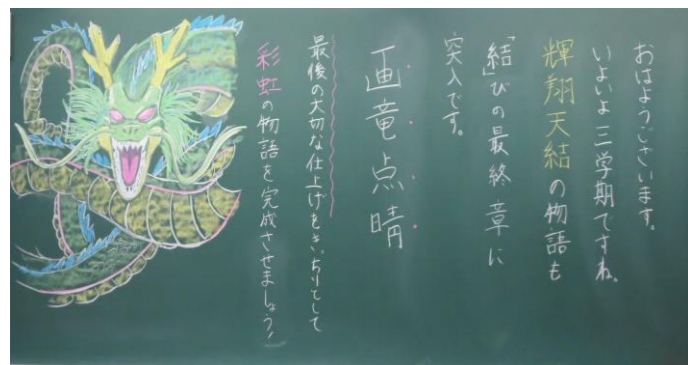 おはようございます。
いよいよ三学期ですね。
輝翔天結の物語も
「結」びの最終章に
突入です。
画竜点晴
最後の大切な仕上げをきっちりとして
彩虹の物語を完成させましょう!